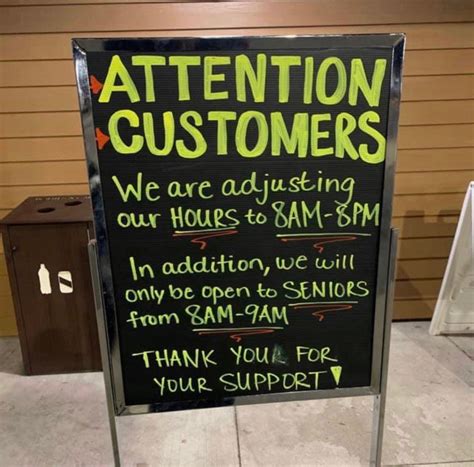 ATTENTION
CUSTOMERS
We are adjusting
our HOURS to 8AM-8PM
In addition, we will
only be open to SENIORS
from 8AM-9AM
THANK YOU FOR
YOUR SUPPORT!